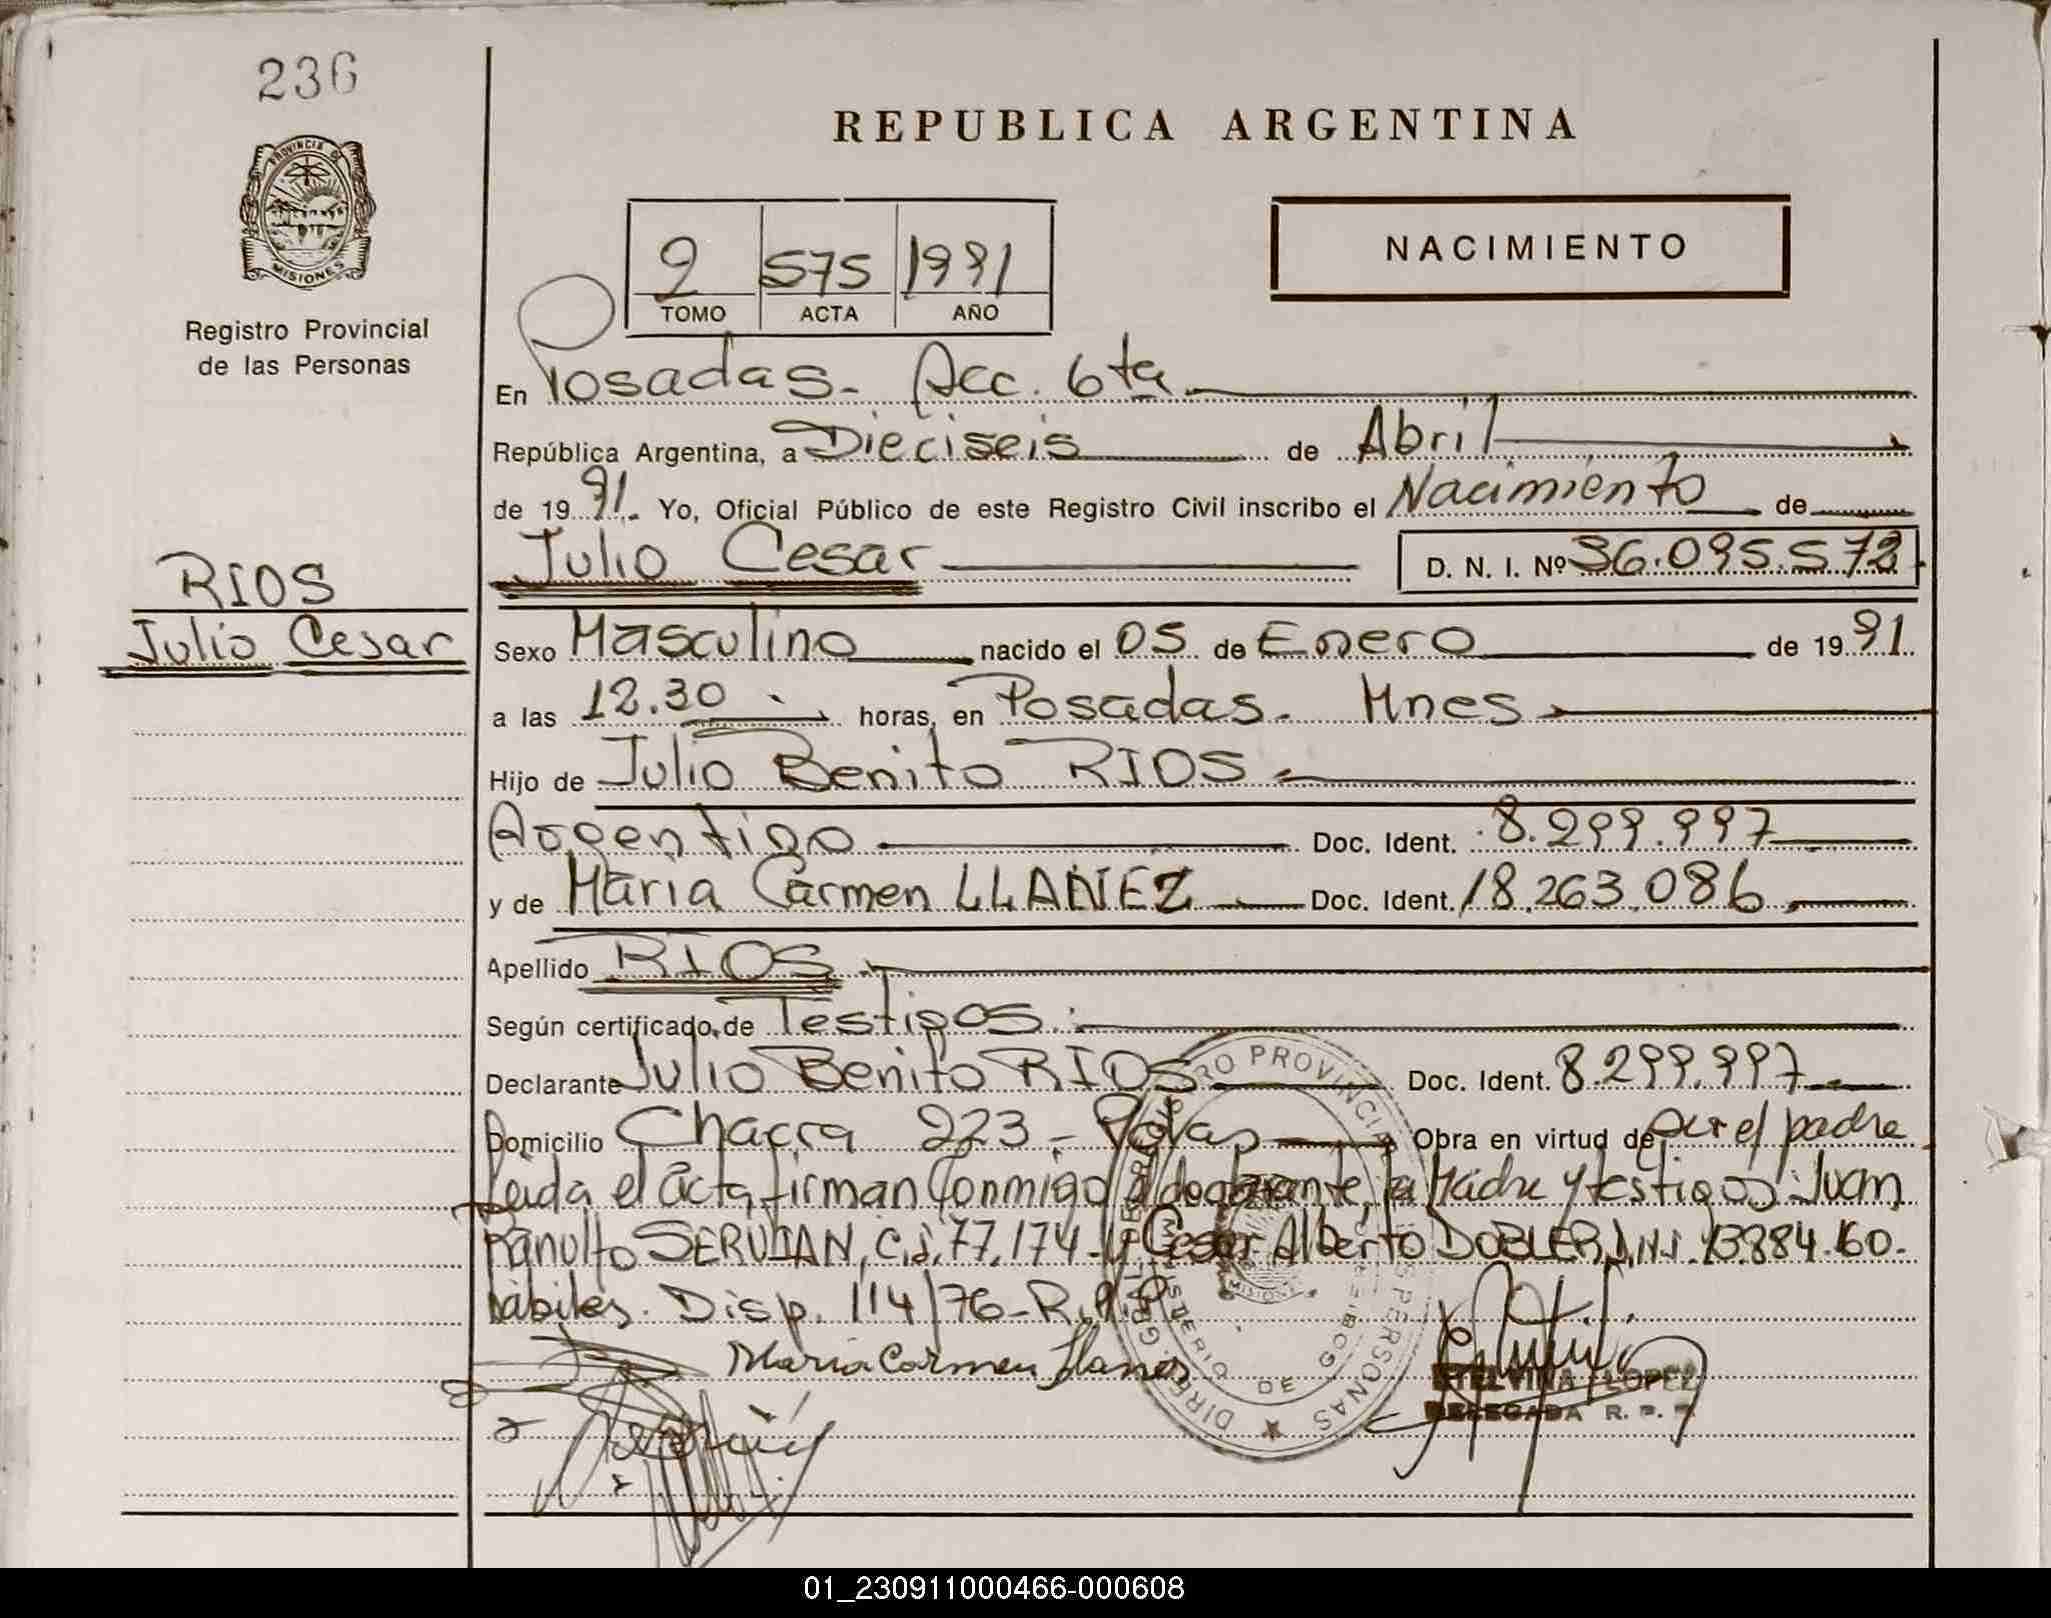 236
REPUBLICA ARGENTINA
PROVINCIA DE
MISIONES
Registro Provincial
de las Personas
2 575 1991
TOMO ACTA AÑO
NACIMIENTO
En Posadas - Acc. 6ta
República Argentina, a Dieciseis de Abril
de 1991. Yo, Oficial Público de este Registro Civil inscribo el Nacimiento de
Julio Cesar D. N. I. Nº 36.095.572
RIOS
Julio Cesar
Sexo Masculino nacido el 05 de Enero de 1991
a las 12.30 horas, en Posadas. Mnes
Hijo de Julio Benito RIOS
Argentino Doc. Ident. 8.299.997
y de Maria Carmen LLANEZ Doc. Ident. 18.263.086
Apellido RIOS
Según certificado de Testigos
Declarante Julio Benito RIOS Doc. Ident. 8.299.997
Domicilio Chacra 223 - Pdas Obra en virtud de ser el padre
Leida el acta, firman conmigo el declarante, la Madre y testigos: Juan
Ranulfo SERVIAN, C.I. 77.174 y Cesar Alberto DOBLER D.N.I. 13.384.160.
habiles. Disp. 114/76-R.P.P.
Maria Carmen Llanes
ETELVINA LOPEZ
DELEGADA R. P. P.
01_230911000466-000608